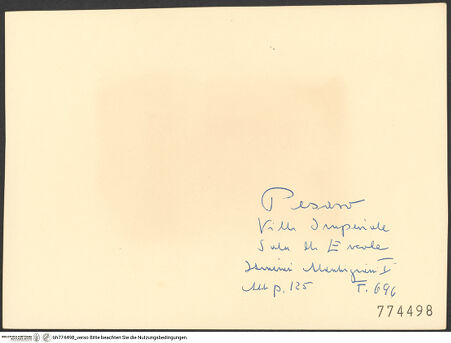 Pesaro
Villa Imperiale
Sala di Ercole
p. 125 F. 696
774498
bh774498_verso Bitte beachten Sie die Nutzungsbedingungen.